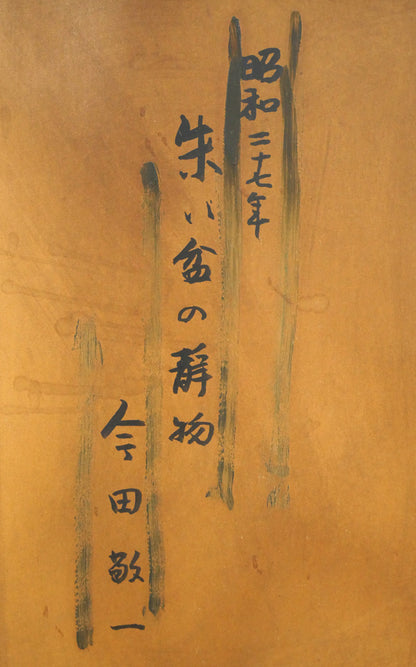 昭和二十七年
朱い盆の靜物
今田敬一